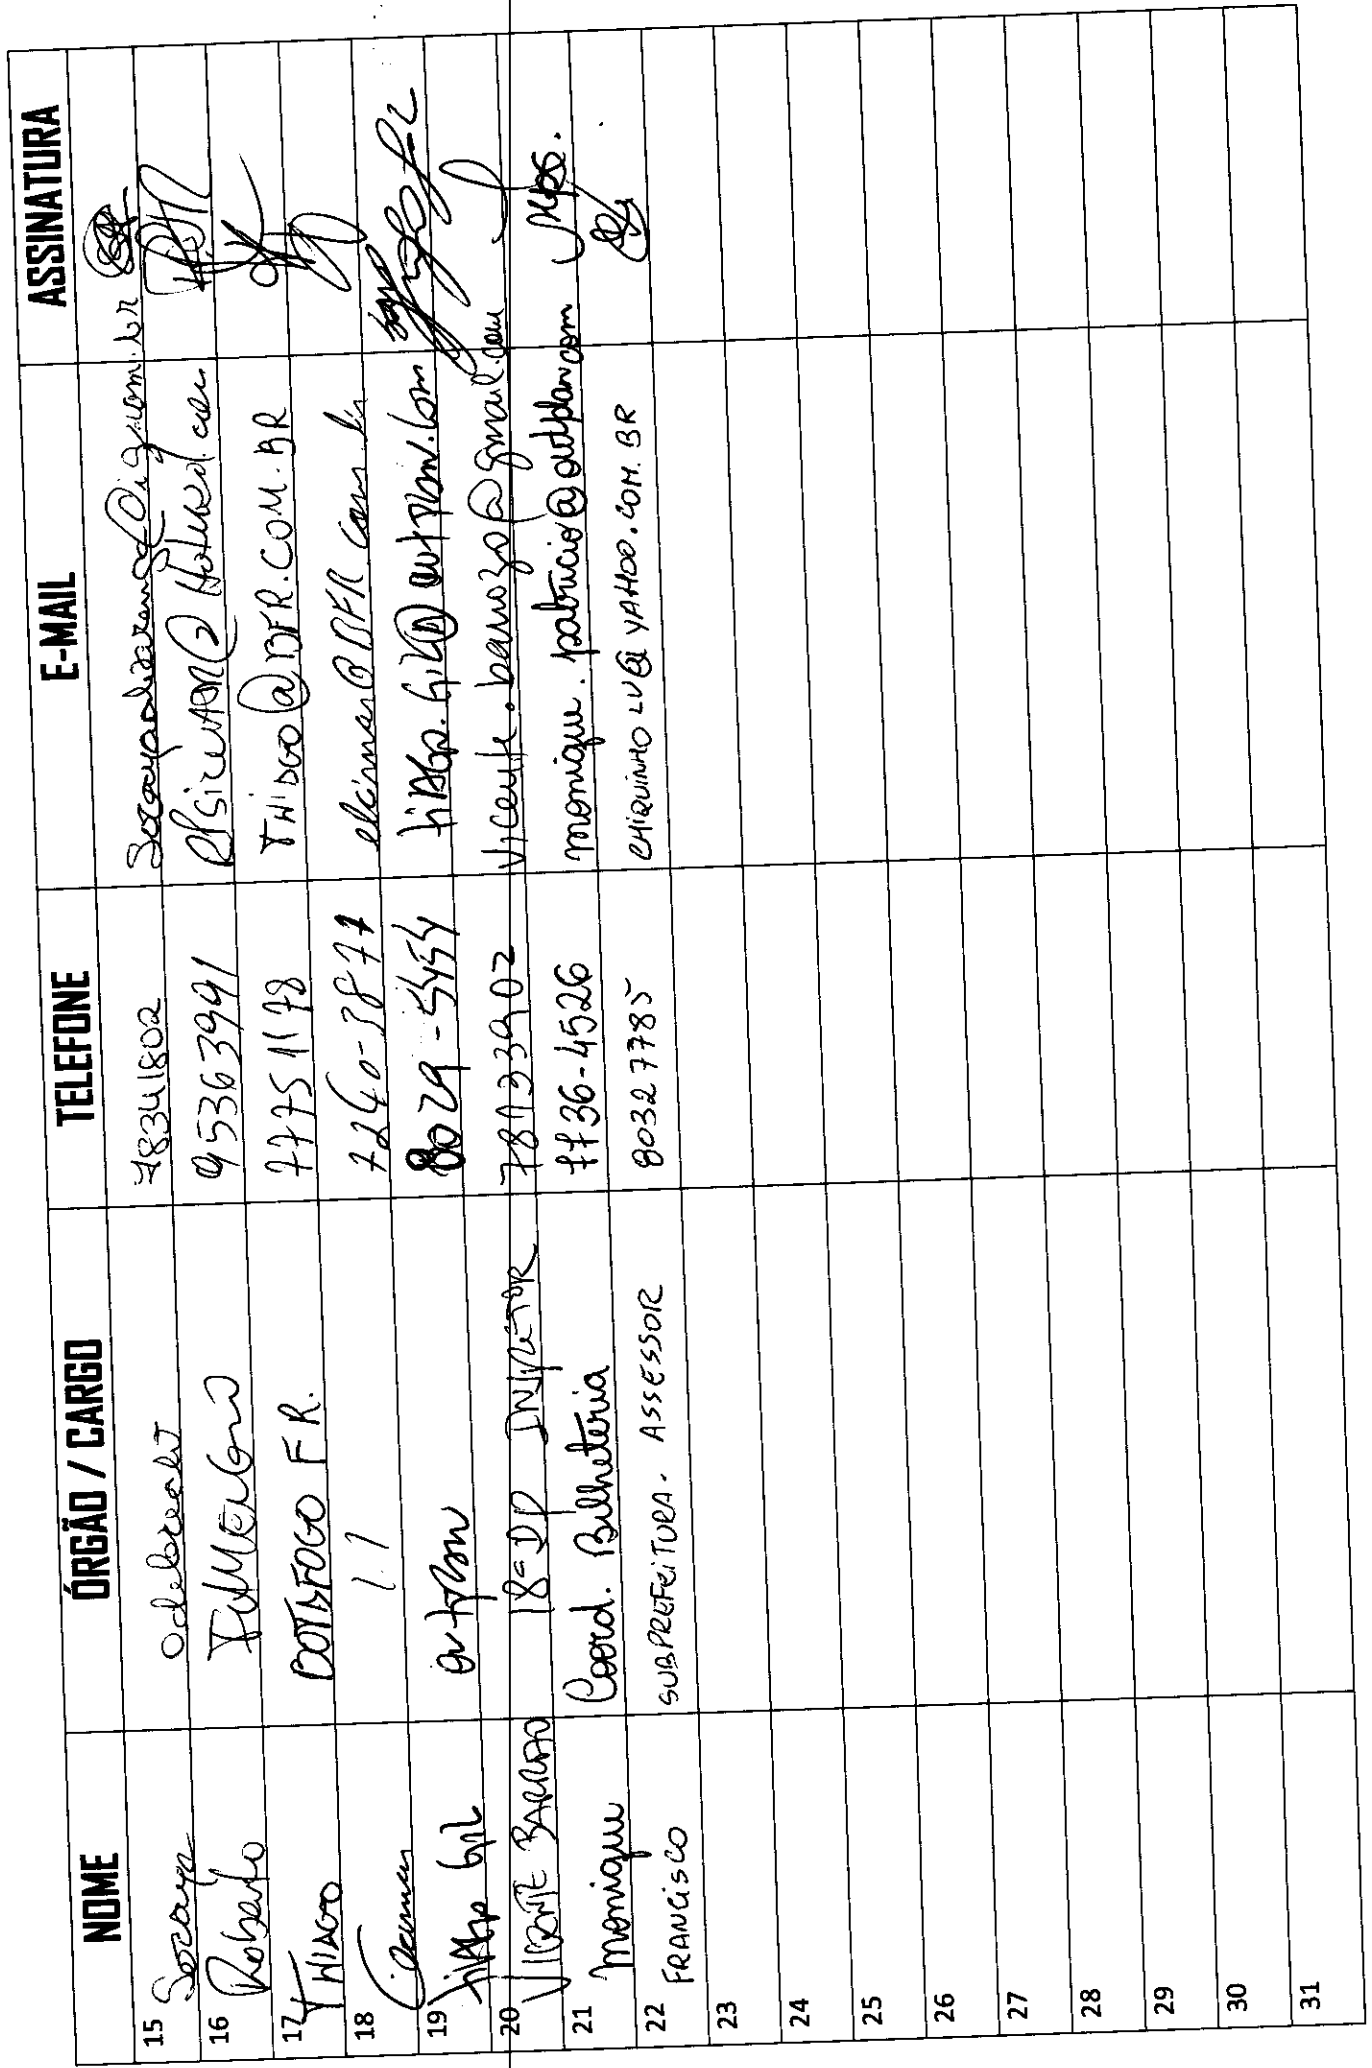 NOME ÓRGÃO / CARGO TELEFONE E-MAIL ASSINATURA
15 Socorya Odebrecht 78341802
16 Roberto Flamengo 95363991
17 THIAGO BOTAFOGO F R. 77751178 THIAGO@BFR.COM.BR
18 11 7240-3877 elcimar@BFR com br
19 Tiago Gil outplan 8029-5454 tiago.gil@outplan.com
20 VICENTE BARROZO 18ª DP INSPETOR 78133902 vicente.barrozo@gmail.com
21 monique Coord. Bilheteria 7736-4526 monique.patricio@outplan.com
22 FRANCISCO SUBPREFEITURA. ASSESSOR 80327785 CHIQUINHO LV@ YAHOO.COM.BR
23
24
25
26
27
28
29
30
31